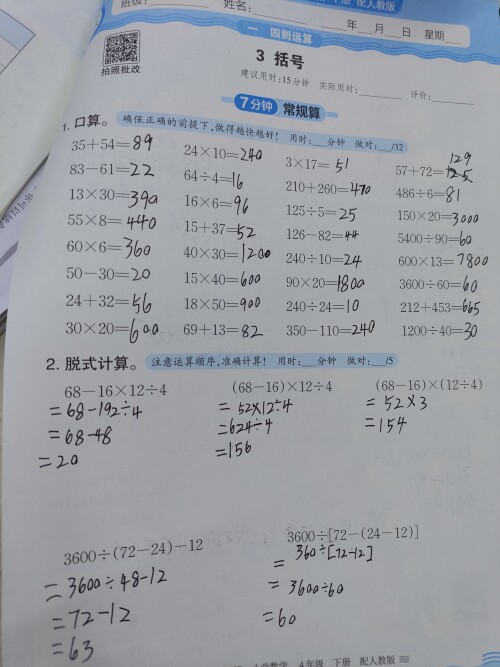 下册 配人教版
班级: 姓名: 年 月 日 星期
一 四则运算
3 括号
拍照批改
建议用时:15分钟 实际用时: 评价:
7分钟 常规算
1. 口算。 确保正确的前提下,做得越快越好! 用时: 分钟 做对: /32
35+54=89 24×10=240 3×17=51 57+72=129
83-61=22 64÷4=16 210+260=470 486÷6=81
13×30=390 16×6=96 125÷5=25 150×20=3000
55×8=440 15+37=52 126-82=44 5400÷90=60
60×6=360 40×30=1200 240÷10=24 600×13=7800
50-30=20 15×40=600 90×20=1800 3600÷60=60
24+32=56 18×50=900 240÷24=10 212+453=665
30×20=600 69+13=82 350-110=240 1200÷40=30
2. 脱式计算。 注意运算顺序,准确计算! 用时: 分钟 做对: /5
68-16×12÷4 (68-16)×12÷4 (68-16)×(12÷4)
=68-192÷4 =52×12÷4 =52×3
=68-48 =624÷4 =154
=20 =156
3600÷(72-24)-12 3600÷[72-(24-12)]
=3600÷48-12 =360÷[72-12]
=72-12 =3600÷60
=63 =60
小学数学 4年级 下册 配人教版